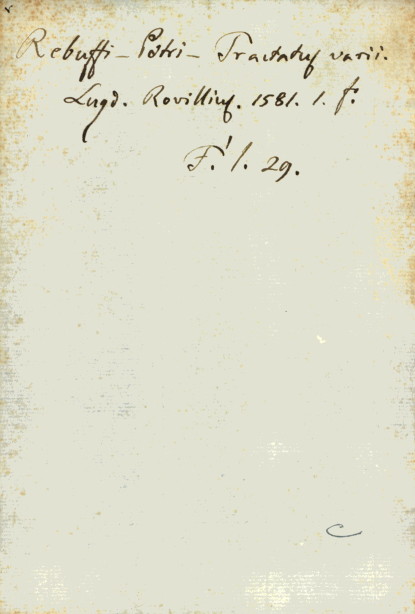 Rebuffi – Petri – Tractatus varii.
Lugd. Rovillius. 1581. 1. f.
F. l. 29.
C